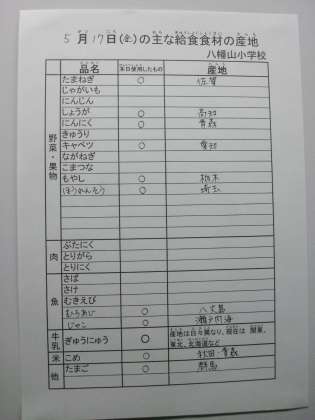 5月17日(金)の主な給食食材の産地
八幡山小学校
品名 本日使用したもの 産地
野菜・果物
たまねぎ ○ 佐賀
じゃがいも
にんじん
しょうが ○ 高知
にんにく ○ 青森
きゅうり
キャベツ ○ 愛知
ながねぎ
こまつな
もやし ○ 栃木
ほうれんそう ○ 埼玉
肉
ぶたにく
とりがら
とりにく
魚
さば
さけ
むきえび
むろあじ ○ 八丈島
じゃこ ○ 瀬戸内海
牛乳 ぎゅうにゅう ○ 産地は日々異なり、現在は 関東、
東北、北海道など
米 こめ ○ 秋田・青森
他 たまご ○ 群馬